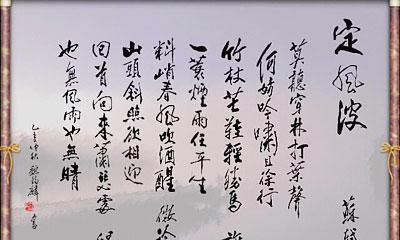 定風波 蘇
莫聽穿林打葉聲
何妨吟嘯且徐行
竹杖芒鞋輕勝馬
一蓑煙雨任平生
料峭春風吹酒醒 微冷
山頭斜照却相迎
回首向來蕭瑟處 歸
也無風雨也無晴
乙亥仲秋 書